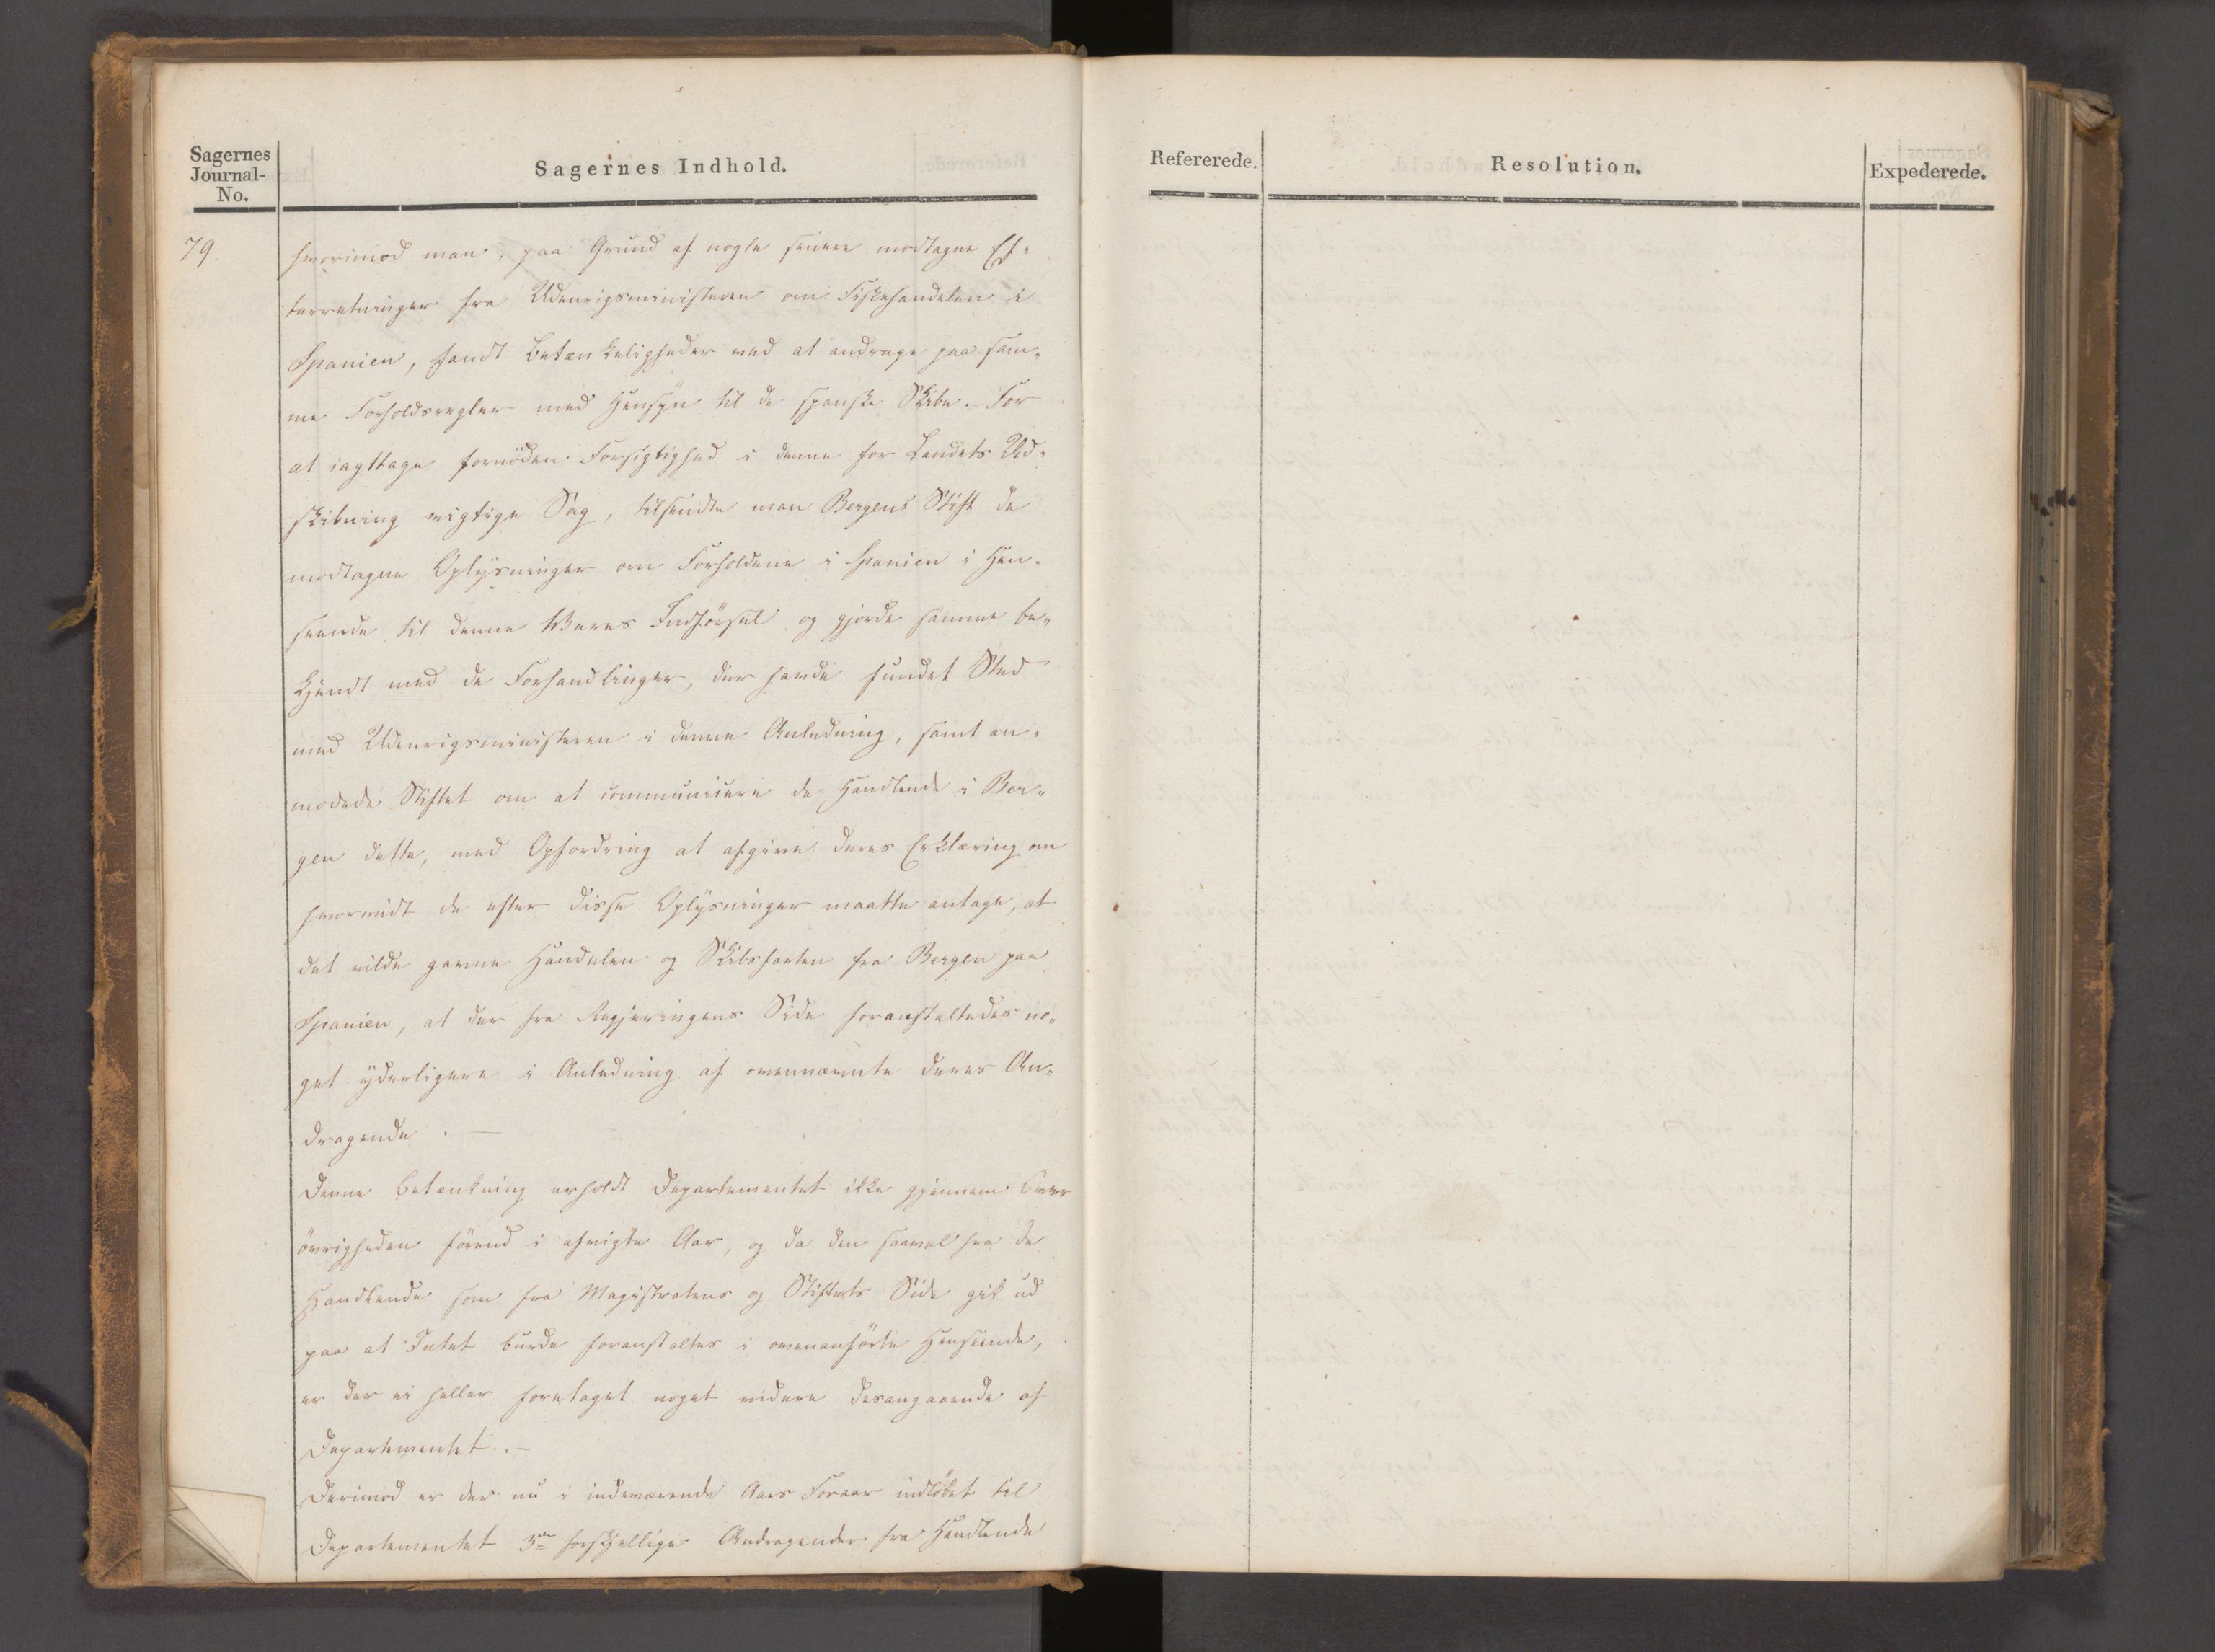 Sagernes
Journal-
No.
Sagernes Indhold.
79.
hvorimod man, paa Grund af nogle senere modtagne Ef-
terretninger fra Udenrigsministeren om Fiskehandelen i
Spanien, fandt Betænkeligheder ved at andrage paa sam-
me Forholdsregler med Hensyn til de spanske Skibe. - For
at iagttage fornöden Forsigtighed i denne for Landets Ud-
skibning vigtige Sag, tilsendte man Bergens Stift de
modtagne Oplysninger om Forholdene i Spanien i Hen-
seende til denne Vares Indförsel og gjorde samme be-
kjendt med de Forhandlinger, der havde fundet Sted
med Udenrigsministeren i denne Anledning, samt an-
modede Stiftet om at communicere de Handlende i Ber-
gen dette, med Opfordring at afgive deres Erklæring om
hvorvidt de efter disse Oplysninger maatte antage, at
det vilde gavne Handelen og Skibsfarten fra Bergen paa
Spanien, at der fra Regjeringens Side foranstaltedes no-
get yderligere i Anledning af ovennævnte deres An-
dragende. —
Denne Betænkning erholdt Departementet ikke gjennem Over
övrigheden förend i afvigte Aar, og da den saavel fra de
Handlende som fra Magistratens og Stiftets Side gik ud
paa at Intet burde foranstaltes i ovenanförte Henseende,
er der ei heller foretaget noget videre desangaaende af
Departementet. —
Derimod er der nu i indeværende Aars Foraar indlöbet til
Departementet 3de forskjellige Andragender fra Handlende
Refererede.
Resolution.
Expederede.